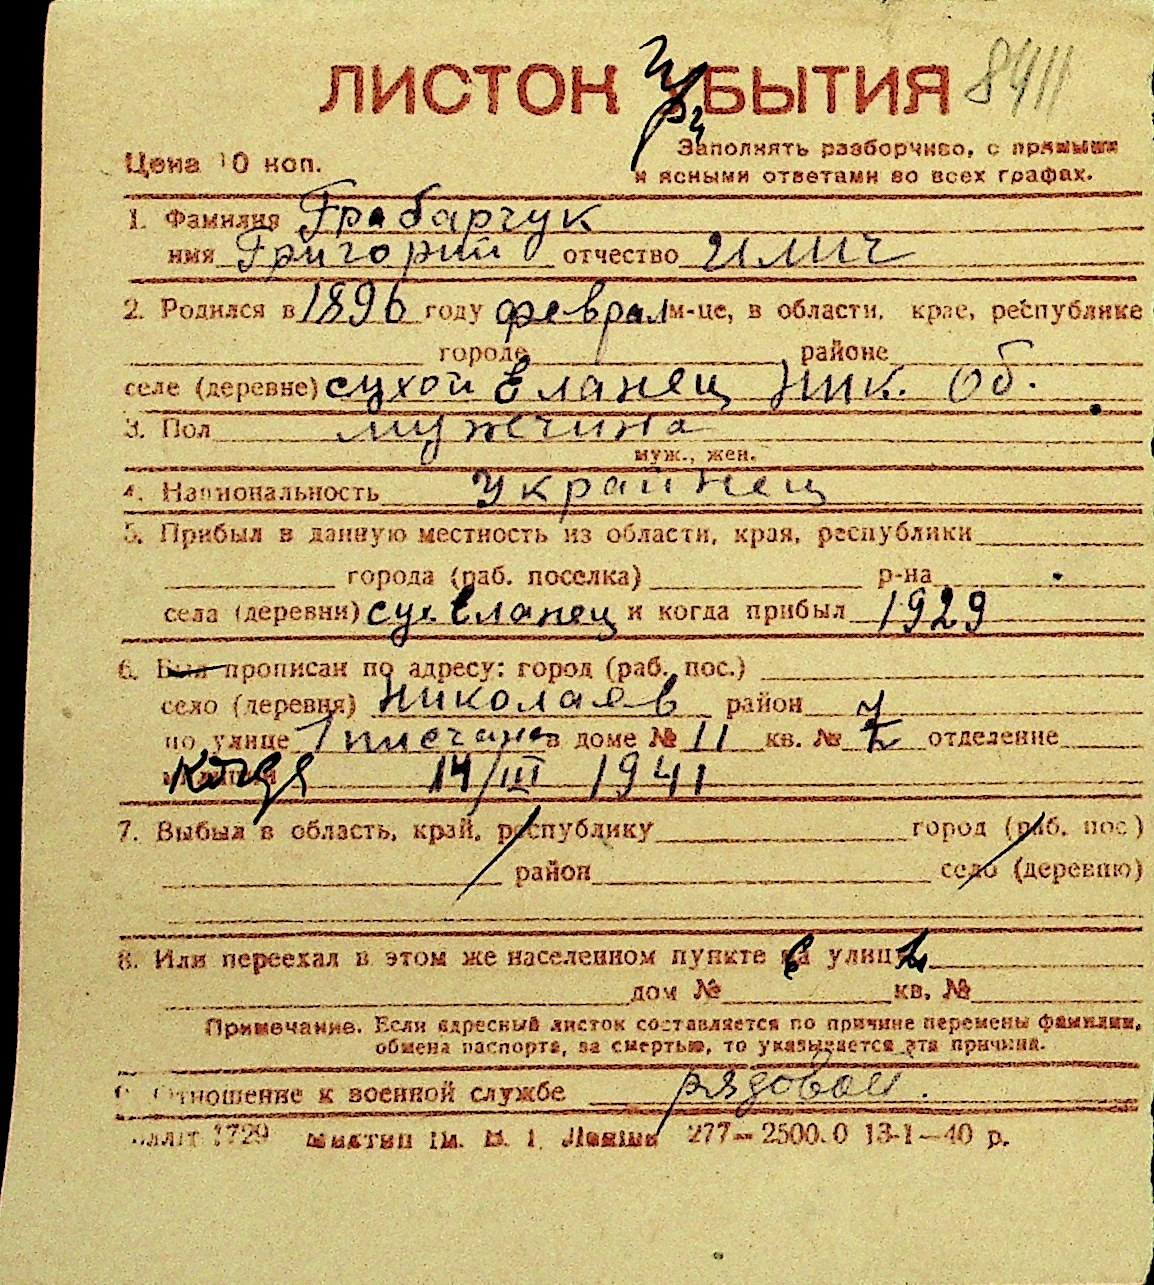 ЛИСТОК УБЫТИЯ 8411
Цена 10 коп.
Заполнять разборчиво, с прямыми
и ясными ответами во всех графах.
1. Фамилия Грабарчук
имя Григорий отчество Илич
2. Родился в 1896 году феврал м-це, в области, крае, республике
городе районе
селе (деревне) сухой Еланец Ник. Об.
3. Пол мужчина
муж., жен.
4. Национальность Украйнец
5. Прибыл в данную местность из области, края, республики
города (раб. поселка) р-на
села (деревни) сух. Еланец и когда прибыл 1929
6. Был прописан по адресу: город (раб. пос.)
село (деревня) Николаев район
по улице 1 писчана в доме № 11 кв. № отделение
милиции когда 14/III 1941
7. Выбыл в область, край, республику город (раб. пос.)
район село (деревню)
8. Или переехал в этом же населенном пункте на улицу
дом № кв. №
Примечание. Если адресный листок составляется по причине перемены фамилии,
обмена паспорта, за смертью, то указывается эта причина.
9. Отношение к военной службе рядовой.
1729 им. В. І. Леніна 277—2500.0 13-1—40 р.